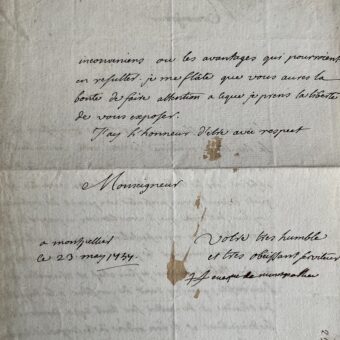 inconveniens ou les avantages qui pourroient
en resulter. je me flate que vous aures la
bonté de faire attention a ce que je prens la liberté
de vous exposer.
J'ay l'honneur d'etre avec respect
Monseigneur
a montpellier
le 23 may 1737.
Votre tres humble
et tres obeissant serviteur
eveque de montpellier